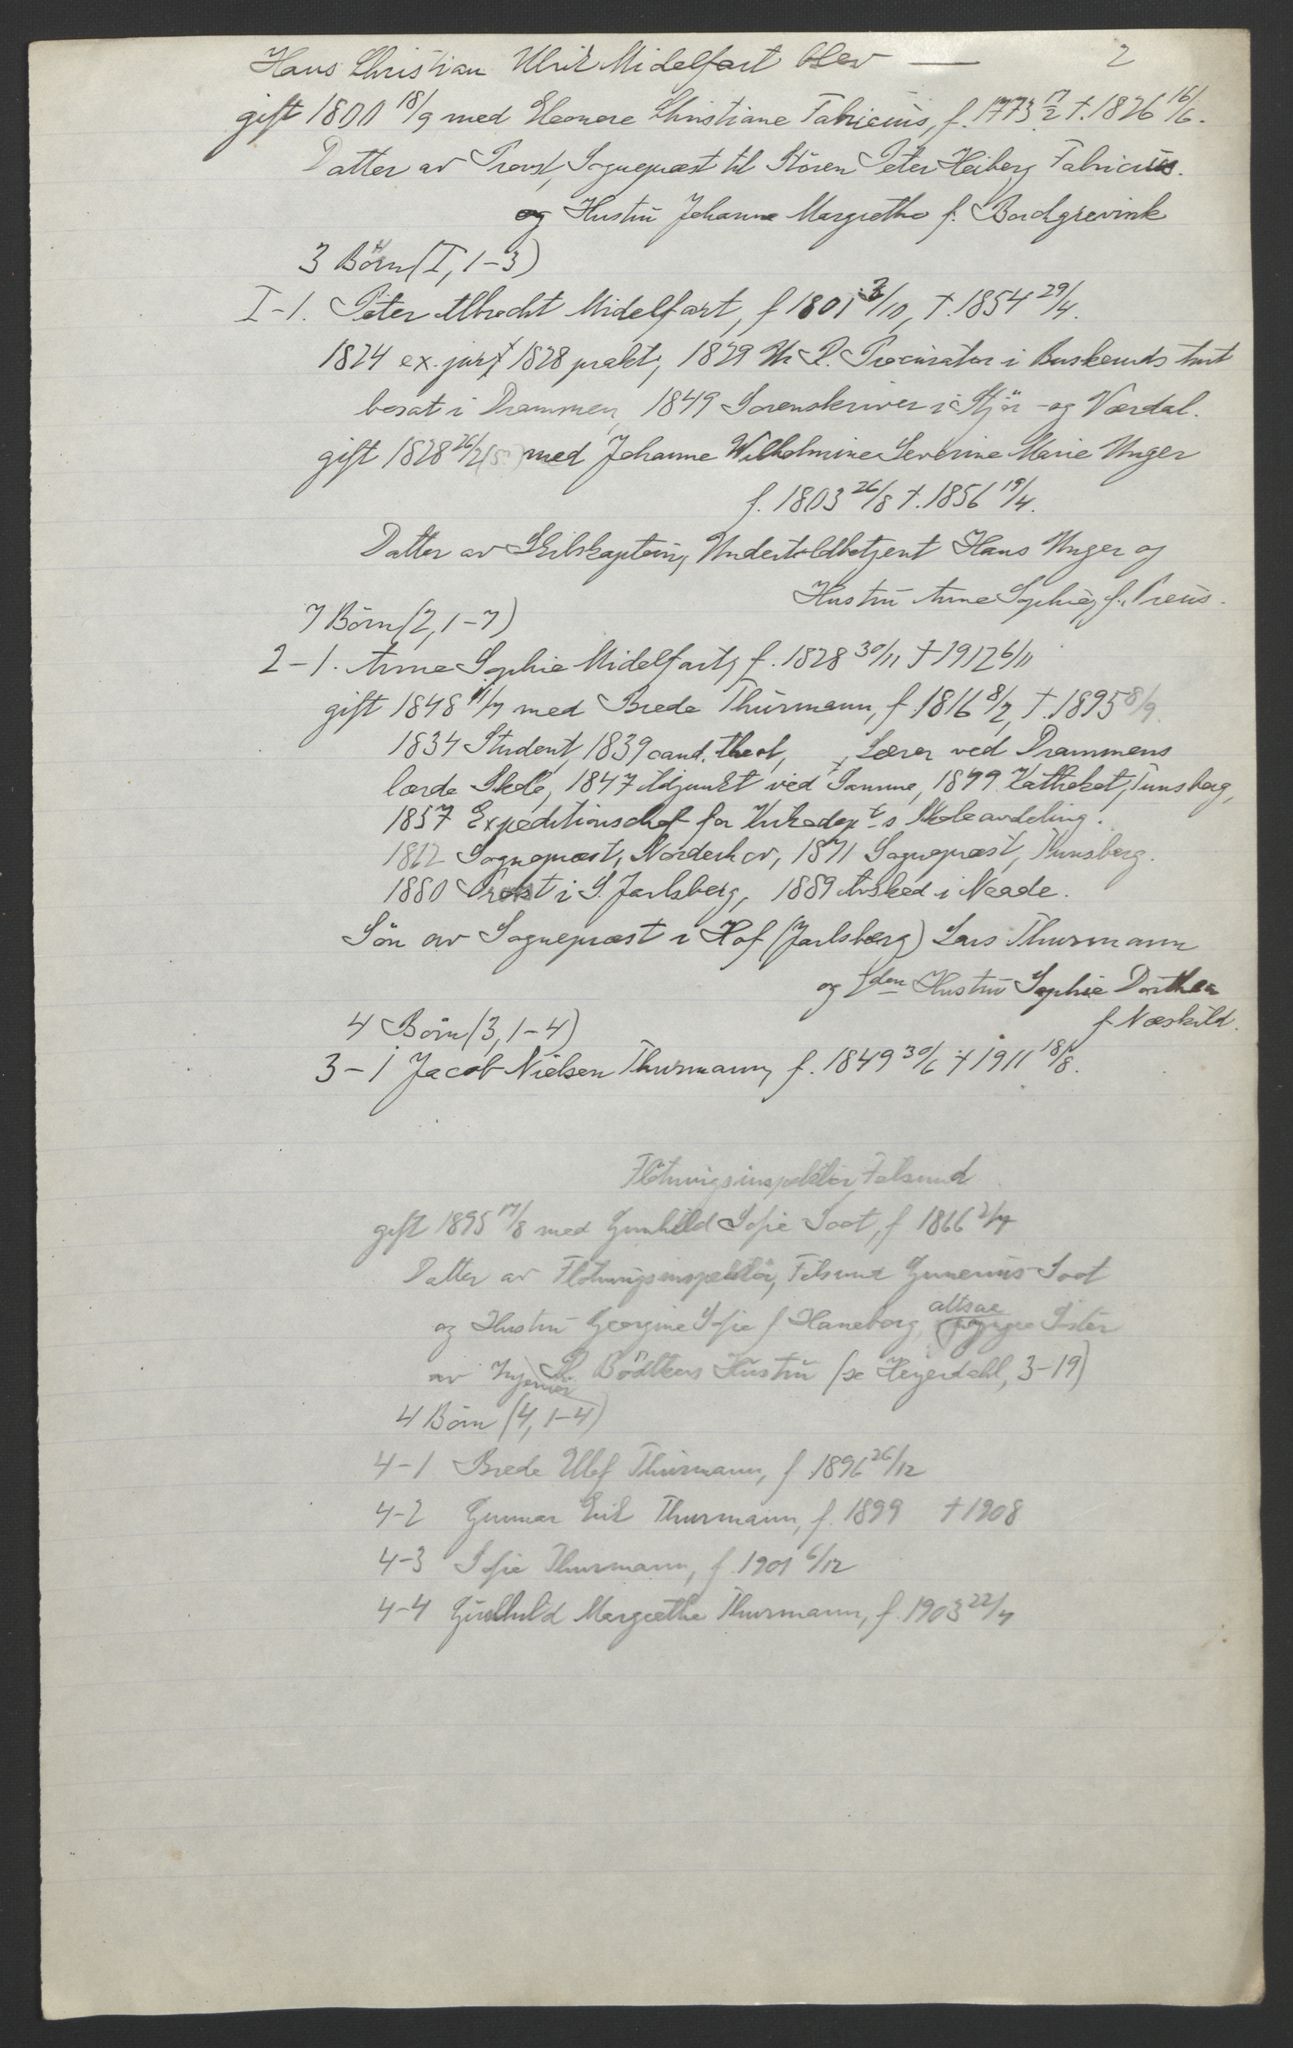 Hans Christian Ulrik Midelfart blev — 2
gift 1800 18/9 med Eleonore Christiane Fabricius, f. 1773 17/2 †. 1826 16/6.
Datter av Provst, Sognepræst til Stören Peter Heiberg Fabricius.
og Hustrü Johanne Margrethe f. Bordgrevink
3 Börn (I, 1-3)
I-1. Peter Albrecht Midelfart, f 1801 3/10, †. 1854 29/4.
1824 ex. jur, 1828 prakt, 1829 Procürator i Buskeruds Amt
bosat i Drammen, 1849 Sorenskriver i Stjör- og Værdal.
gift 1828 26/2 med Johanne Wilhelmine Severine Marie Unger
f. 1803 26/8 †. 1856 19/4.
Datter av Skibskaptein, Undertoldbetjent Hans Unger og
Hustrü Anne Sophie, f. Preüs.
7 Börn (2, 1-7)
2-1. Anne Sophie Midelfart, f. 1828 30/11 † 1912 6/11
gift 1848 11/7 med Brede Thürmann, f. 1816 8/2, †. 1895 8/9.
1834 Student, 1839 cand. theol, Lærer ved Drammens
lærde Skole, 1847 Adjunkt ved Samme, 1849 Katheket, Tünsberg,
1857 Expeditionschef for Kirkedept.s Skoleavdeling.
1862 Sognepræst, Norderhov, 1871 Sognepræst, Tünsberg.
1880 Provst i S. Jarlsberg, 1889 Avsked i Naade.
Sön av Sognepræst i Hof (Jarlsberg) Lars Thurmann
og den Hustrü Sophie Dorthea
f. Næskild.
4 Börn (3, 1-4)
3-1 Jacob Nielsen Thurmann, f. 1849 30/6 † 1911 18/8.
Flötningsinspektör, Fetsund
gift 1895 17/8 med Gunhild Sofie Soot, f 1866 2/7
Datter av Flötningsinspektör, Fetsund Gunerius Soot
og Hustrü Georgine Sofie f Haneborg, altsaa Söster
av Ingeniör Bödtkers Hüstrü (se Heyerdahl, 3-19)
4 Börn (4, 1-4)
4-1 Brede Ulef Thürmann, f 1896 26/12
4-2 Gunnar Erik Thurmann, f. 1899 † 1908
4-3 Sofie Thurmann, f 1901 6/12
4-4 Margrethe Thurmann, f. 1903 22/7